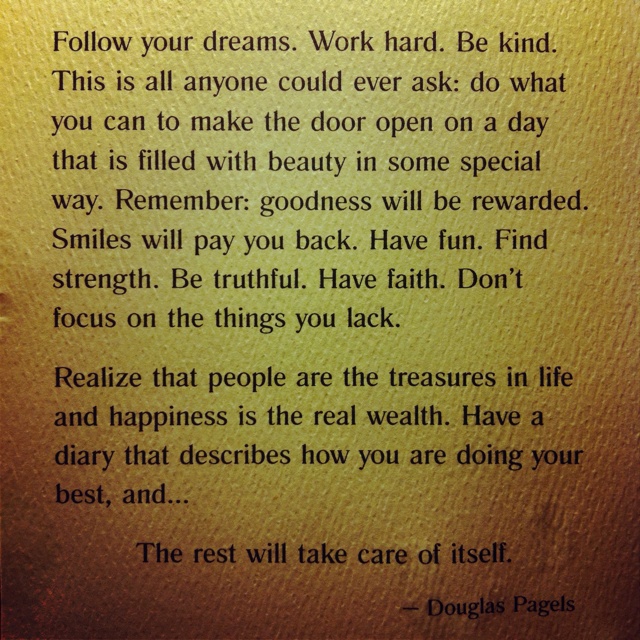 Follow your dreams. Work hard. Be kind.
This is all anyone could ever ask: do what
you can to make the door open on a day
that is filled with beauty in some special
way. Remember: goodness will be rewarded.
Smiles will pay you back. Have fun. Find
strength. Be truthful. Have faith. Don't
focus on the things you lack.
Realize that people are the treasures in life
and happiness is the real wealth. Have a
diary that describes how you are doing your
best, and...
The rest will take care of itself.
— Douglas Pagels